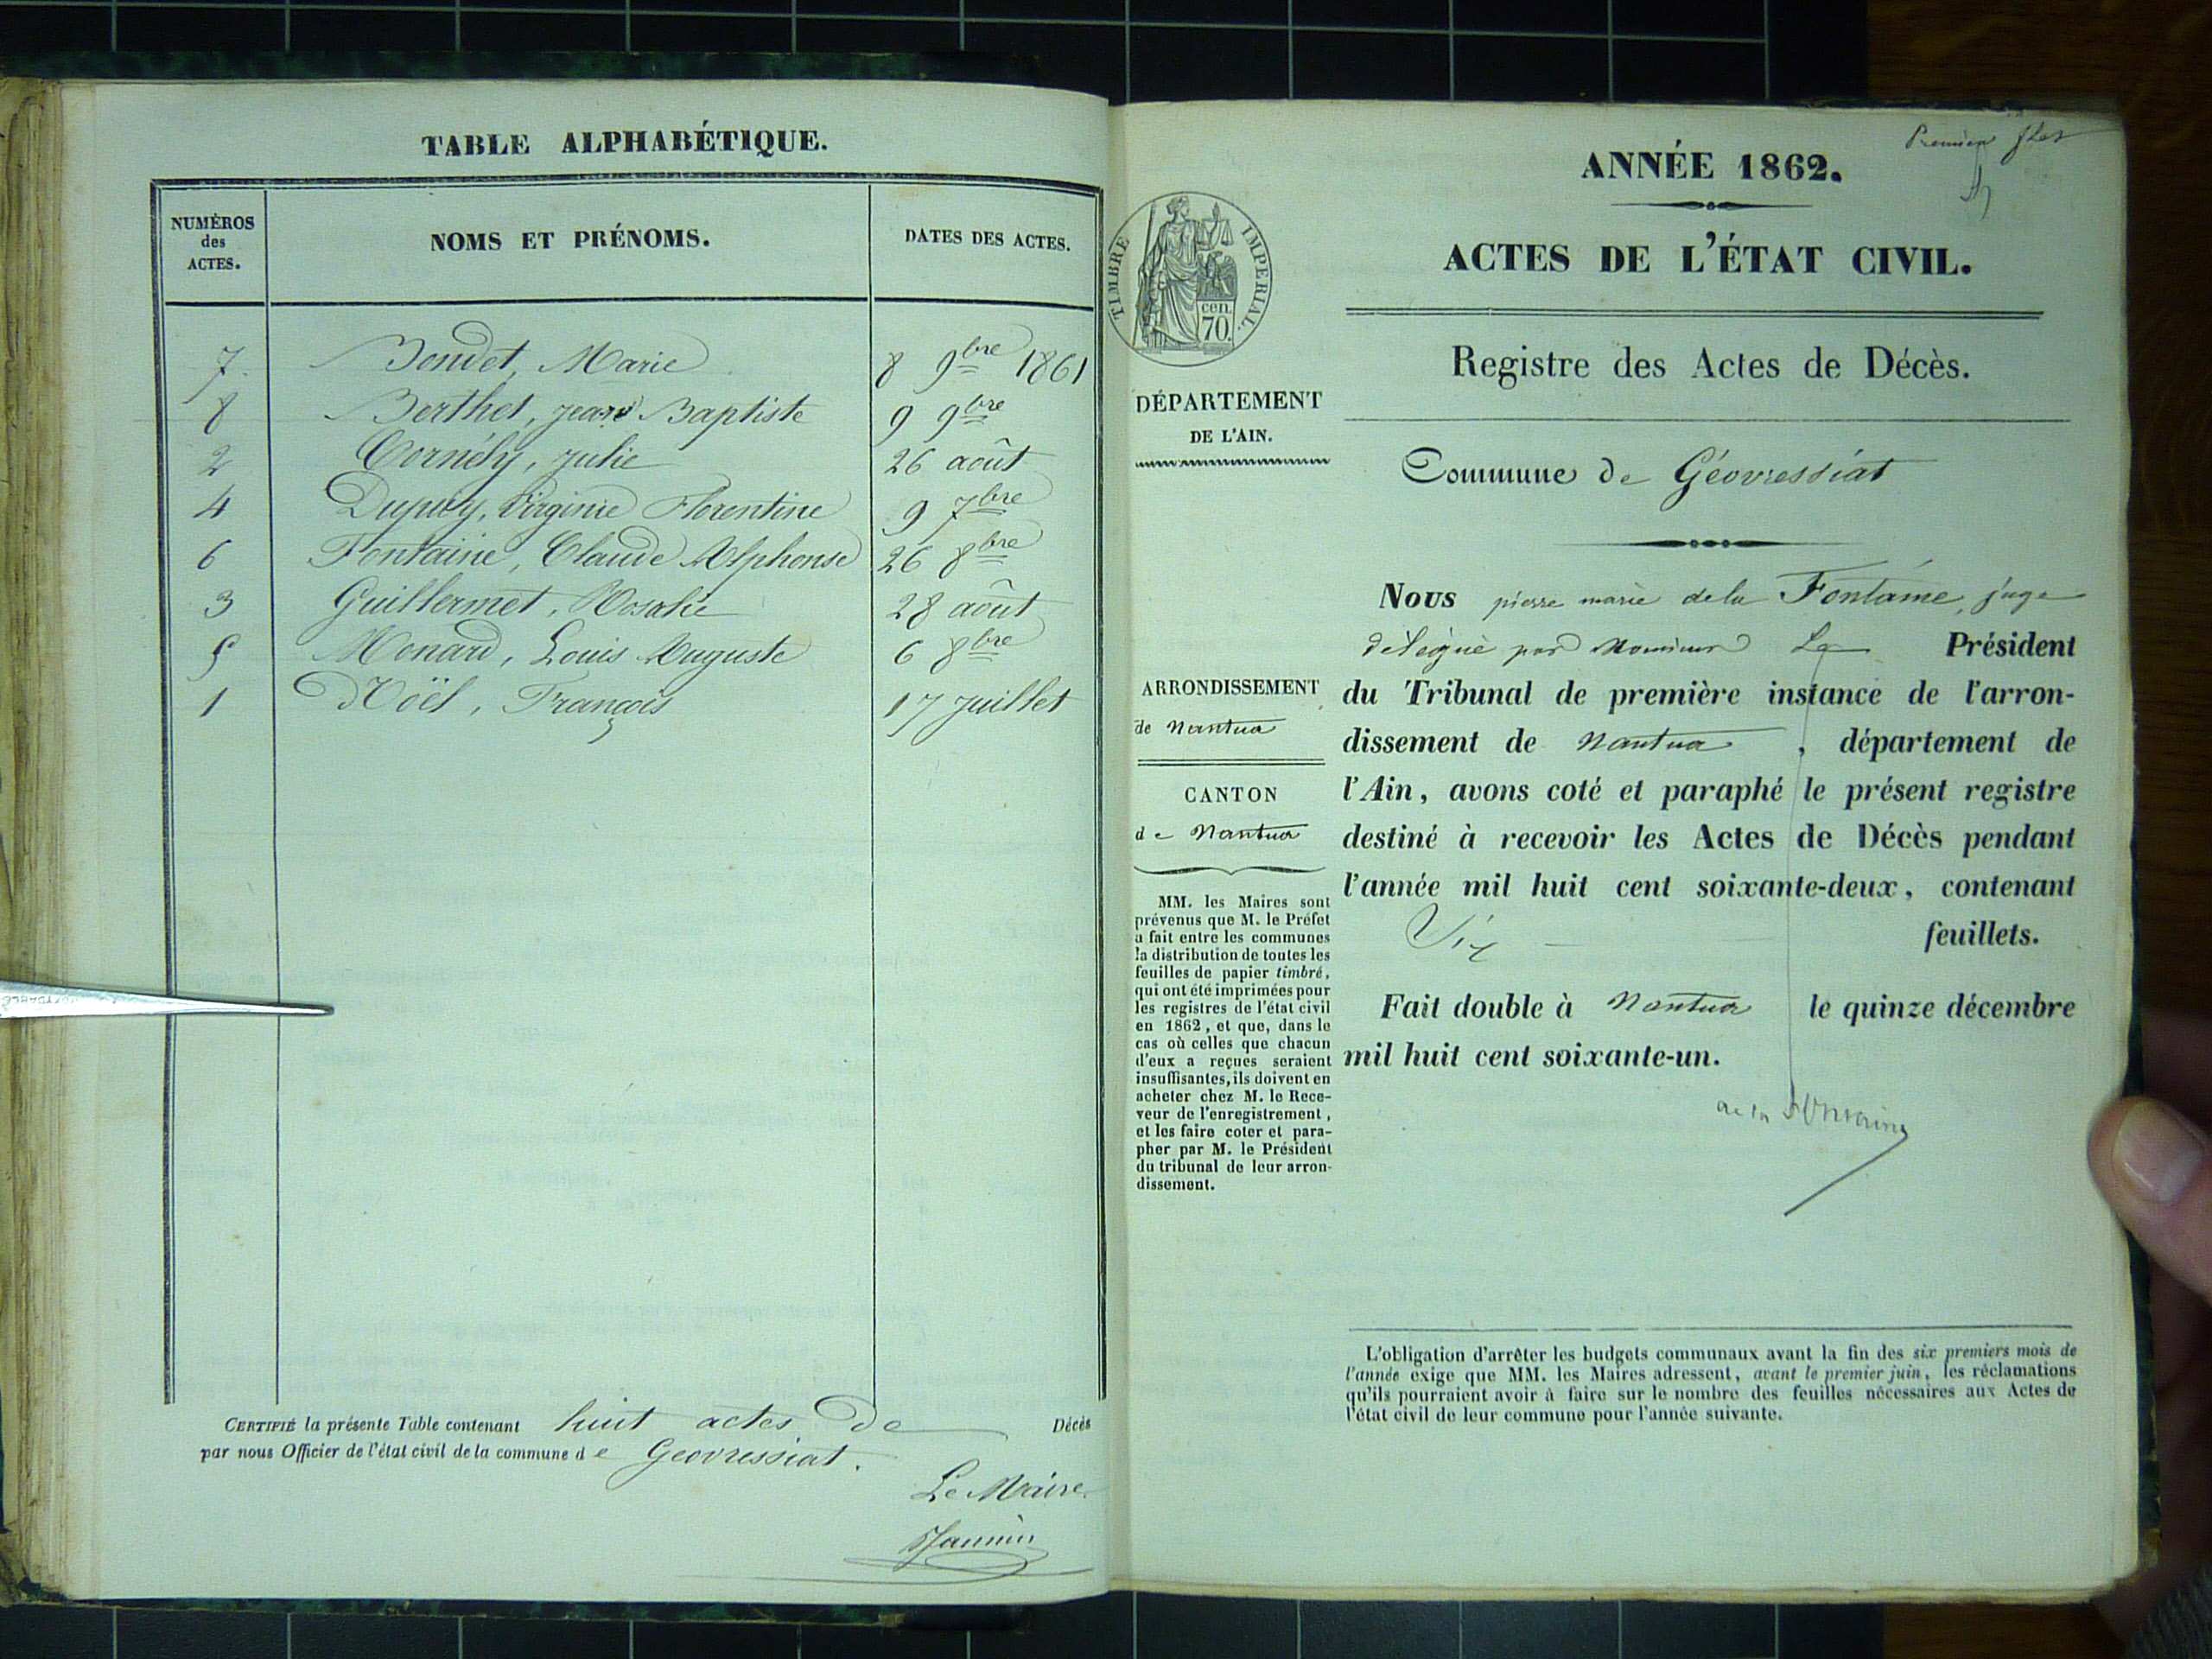 TABLE ALPHABÉTIQUE.
NUMÉROS des ACTES.
NOMS ET PRÉNOMS.
DATES DES ACTES.
7 Bondet, Marie 8 9bre 1861
8 Berthet, jean Baptiste 9 9bre
2 Cornély, julie 26 août
4 Dupuy, Virginie Florentine 9 7bre
6 Fontaine, Claude Alphonse 26 8bre
3 Guillermet, Rosalie 28 août
5 Monard, Louis Auguste 6 8bre
1 Noël, François 17 juillet
CERTIFIÉ la présente Table contenant huit actes de Décès
par nous Officier de l'état civil de la commune de Geovressiat.
Le Maire
Premier
ANNÉE 1862.
ACTES DE L'ÉTAT CIVIL.
TIMBRE IMPERIAL.
cen.
70.
Registre des Actes de Décès.
DÉPARTEMENT
DE L'AIN.
Commune de Géovressiat
Nous pierre marie de la Fontaine, juge
délégué par Monsieur Le Président
du Tribunal de première instance de l'arron-
dissement de Nantua, département de
l'Ain, avons coté et paraphé le présent registre
destiné à recevoir les Actes de Décès pendant
l'année mil huit cent soixante-deux, contenant
Six feuillets.
Fait double à Nantua le quinze décembre
mil huit cent soixante-un.
de la Fontaine
ARRONDISSEMENT
de Nantua
CANTON
de Nantua
MM. les Maires sont
prévenus que M. le Préfet
a fait entre les communes
la distribution de toutes les
feuilles de papier timbré,
qui ont été imprimées pour
les registres de l'état civil
en 1862, et que, dans le
cas où celles que chacun
d'eux a reçues seraient
insuffisantes, ils doivent en
acheter chez M. le Rece-
veur de l'enregistrement,
et les faire coter et para-
pher par M. le Président
du tribunal de leur arron-
dissement.
L'obligation d'arrêter les budgets communaux avant la fin des six premiers mois de
l'année exige que MM. les Maires adressent, avant le premier juin, les réclamations
qu'ils pourraient avoir à faire sur le nombre des feuilles nécessaires aux Actes de
l'état civil de leur commune pour l'année suivante.